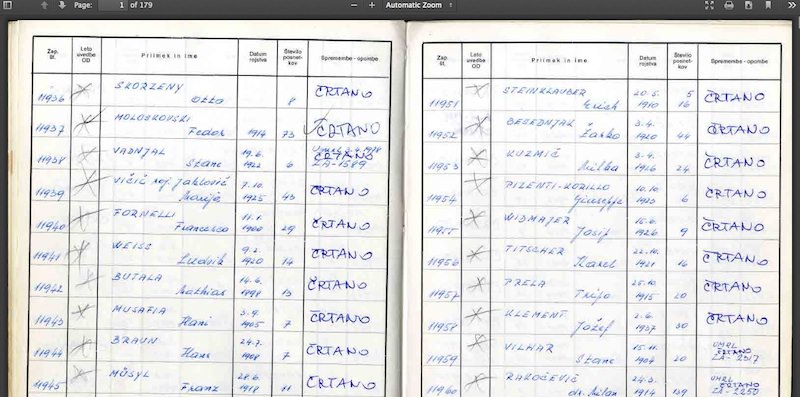 Page: 1 of 179 Automatic Zoom
Zap. št. Leto uvedbe OD Priimek in ime Datum rojstva Število posnetkov Spremembe - opombe
11936 SKORZENY Otto 8 ČRTANO
11937 MOLOSKOVSKI Fedor 1914 73 ČRTANO
11938 VADNJAL Stane 19.6. 1922 6 Umrl 2.4.1978 ČRTANO ZA-1589
11939 VIČIČ roj. Jaklovič Marija 7.10. 1925 43 ČRTANO
11940 FORNELLI Francesco 11.1. 1900 29 ČRTANO
11941 WEISS Ludvik 9.2. 1920 14 ČRTANO
11942 BUTALA Mathias 14.6. 1898 13 ČRTANO
11943 MUSAFIA Hani 3.9. 1905 7 ČRTANO
11944 BRAUN Hans 24.7. 1908 7 ČRTANO
11945 MÜSYL Franz 28.6. 1918 11 ČRTANO
Zap. št. Leto uvedbe OD Priimek in ime Datum rojstva Število posnetkov Spremembe - opombe
11951 STEINKLAUBER Erich 20.5. 1910 5 16 ČRTANO
11952 BESEDNJAK Žarko 3.4. 1920 44 ČRTANO
11953 KUZMIČ Milka 3.9. 1926 24 ČRTANO
11954 PIZENTI-KORILLO Giuseppe 10.10. 1923 6 ČRTANO
11955 WIDMAJER Josif 15.6. 1926 9 ČRTANO
11956 TITSCHER Karel 22.10. 1921 16 ČRTANO
11957 PRELA Trifo 25.10 1915 20 ČRTANO
11958 KLEMENT Jožef 2.6. 1937 30 ČRTANO
11959 VILHAR Stane 15.11. 1904 20 UMRL ČRTANO ZA-2317
11960 RAKOČEVIČ dr. Milan 24.3. 1914 139 UMRL ČRTANO ZA-2250